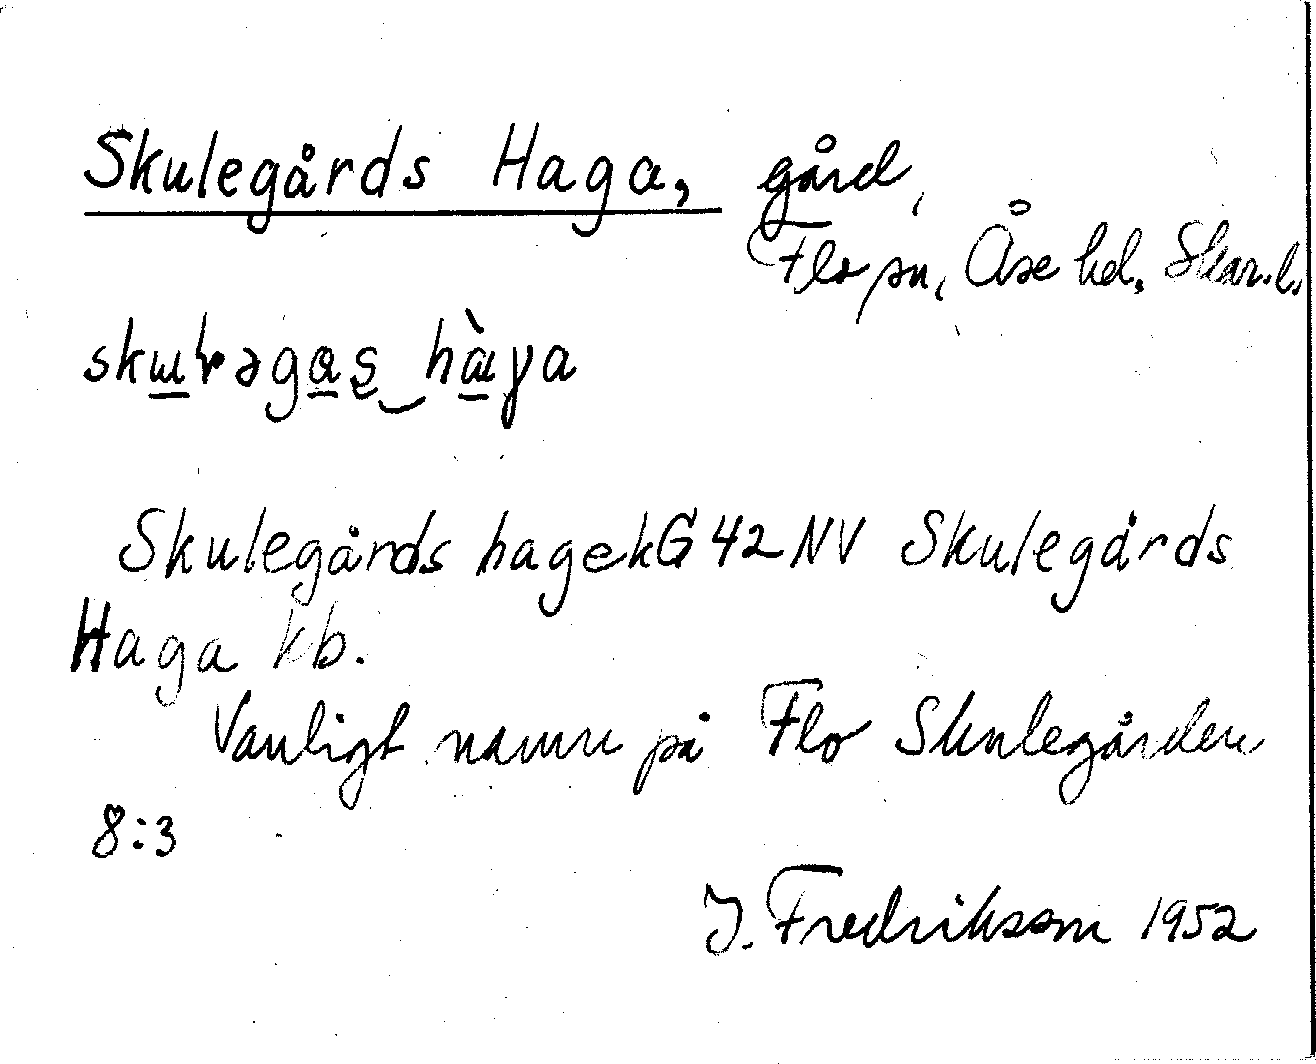 Skulegårds Haga, gård,
Flo sn, Åse hd, Skar.l.
Skulegårds hage kG 42 NV Skulegårds
Haga kb.
Vanligt namn på Flo Skulegården
8:3
J. Fredriksson 1952